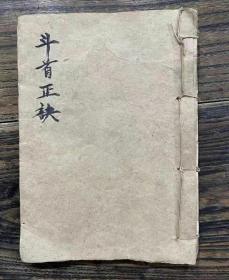 斗首正訣